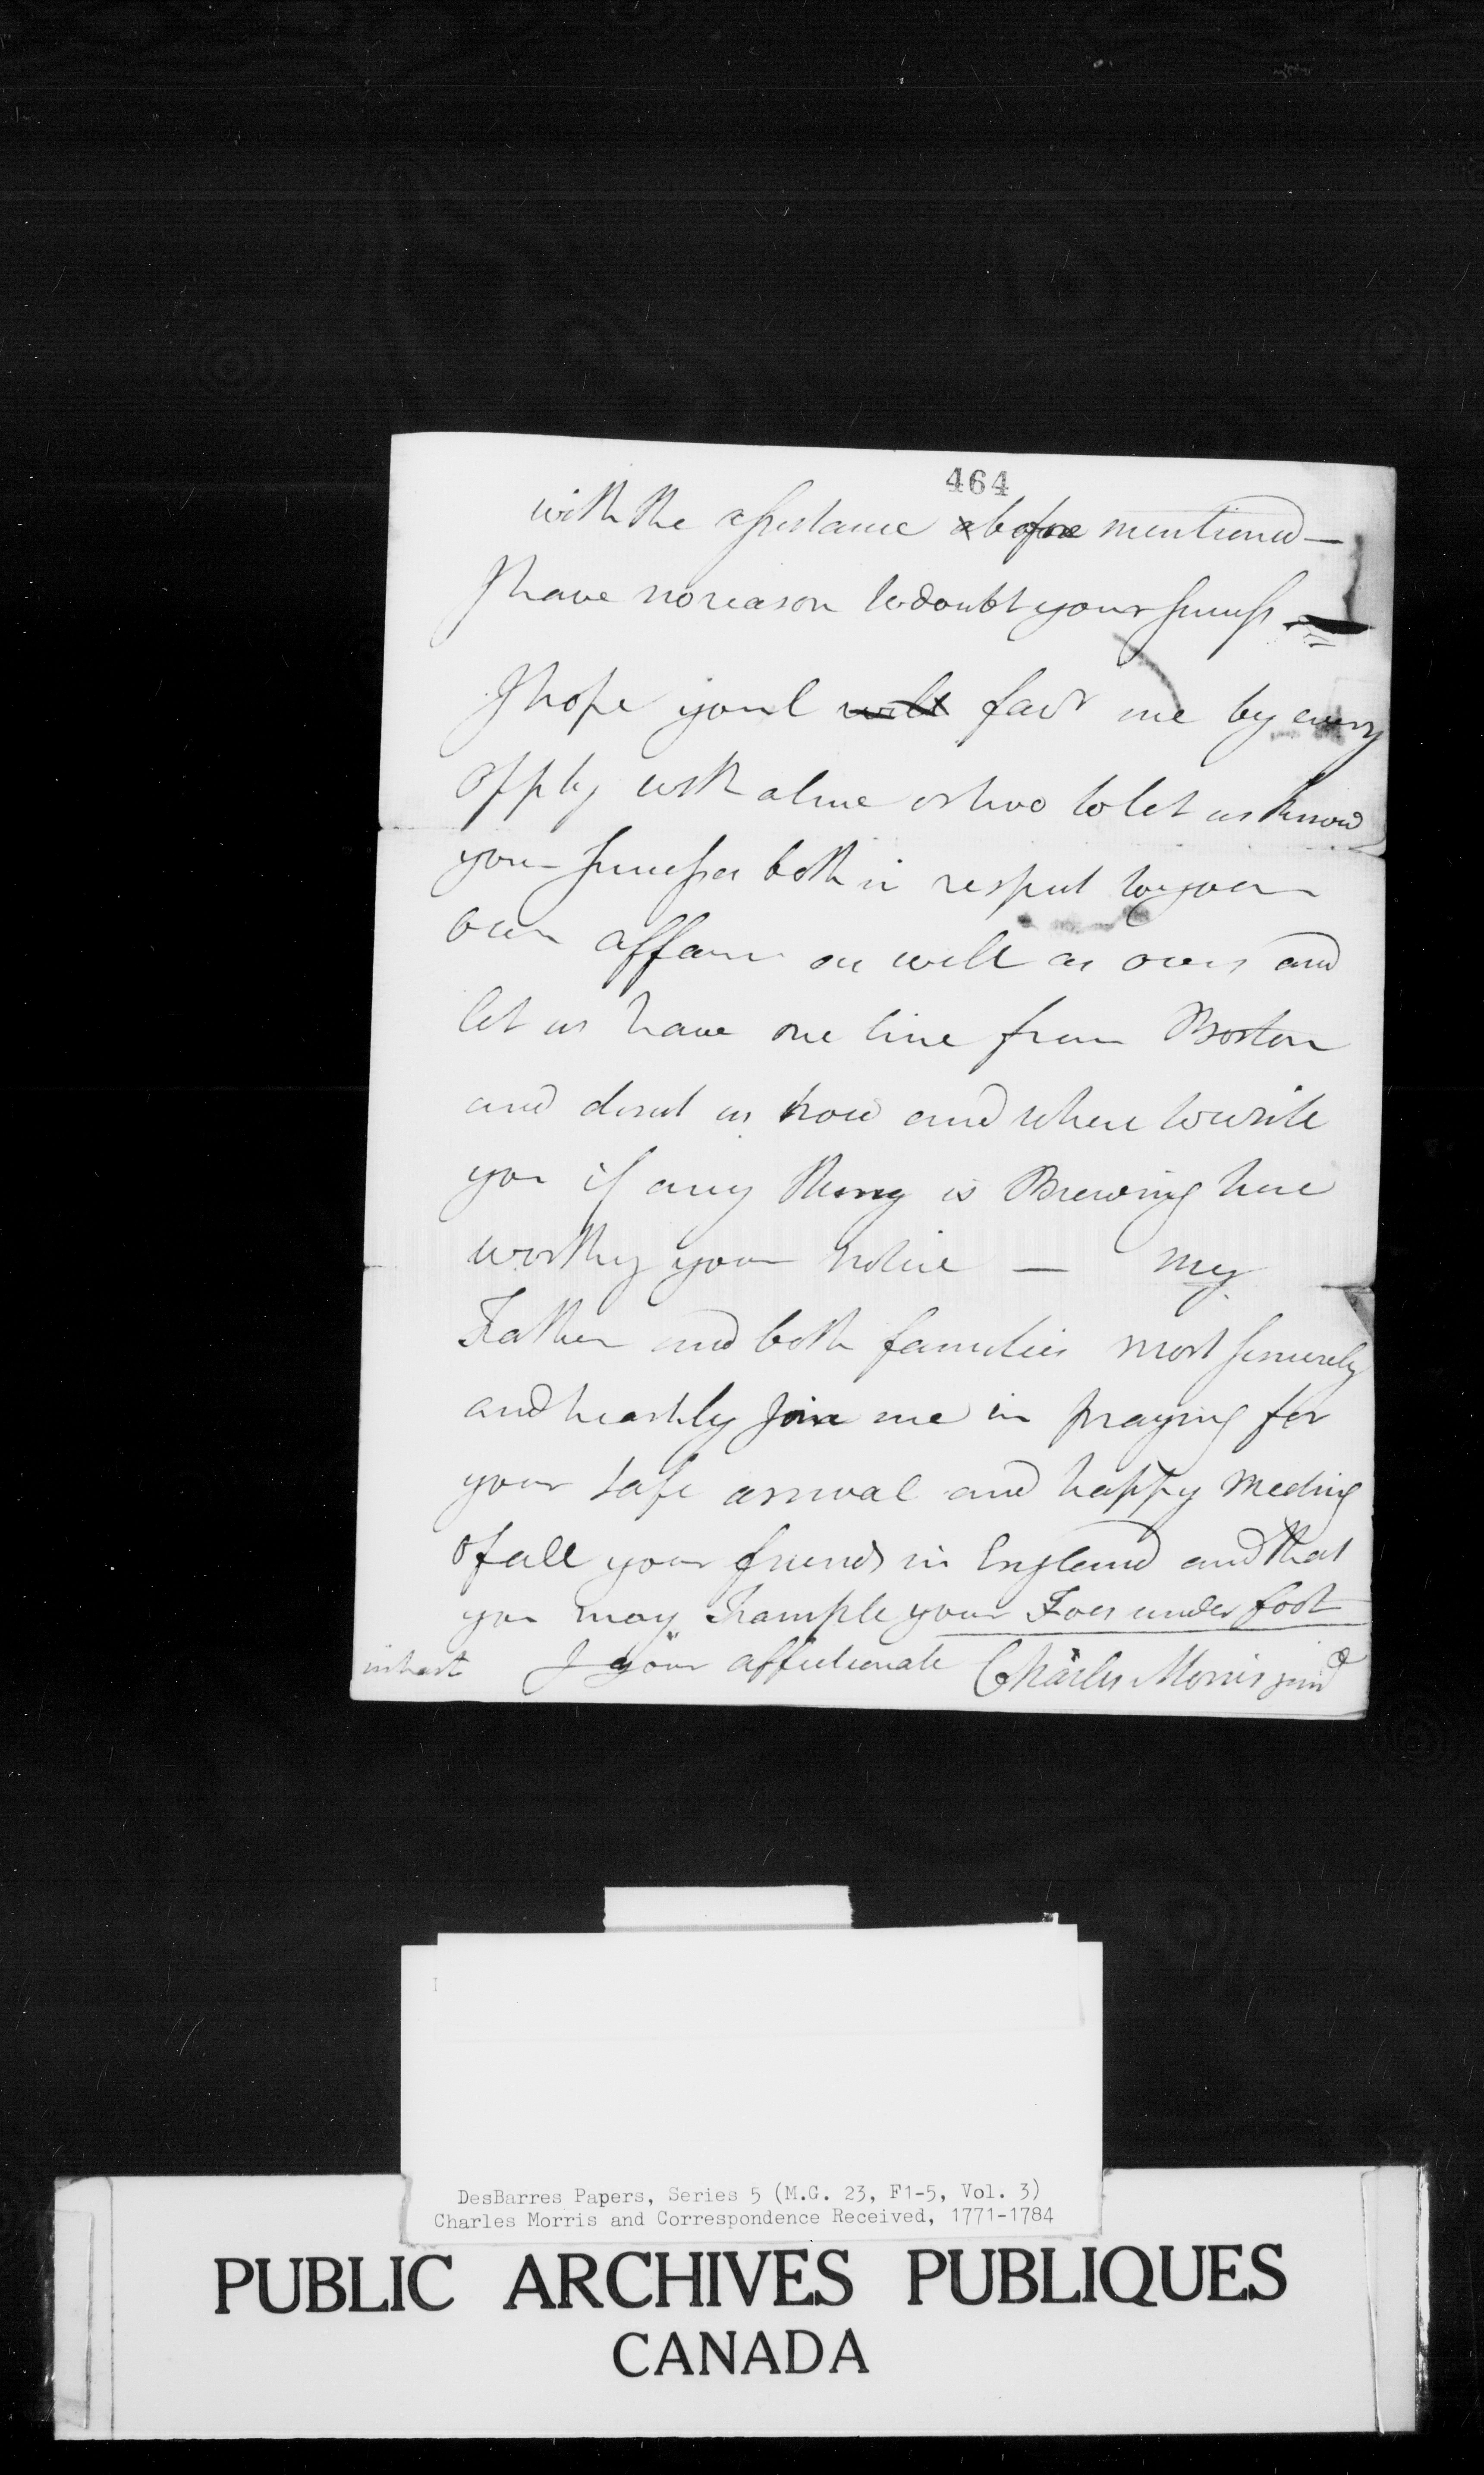 464
with the assistance before mentioned —
I have no reason to doubt your success
I hope youl will favr me by every
oppty with a line or two to let us know
your success both in respect to your
own affairs as well as ours and
let us have one line from Boston
and direct us how and where to write
you if any thing is Brewing here
worthy your notice — my
Father and both families most sincerely
and heartily Join me in praying for
your safe arrival and happy meeting
of all your friends in England and that
you may Trample your Foes under foot
in hast your affectionate Charles Morris junr
DesBarres Papers, Series 5 (M.G. 23, F1-5, Vol. 3)
Charles Morris and Correspondence Received, 1771-1784
PUBLIC ARCHIVES PUBLIQUES
CANADA